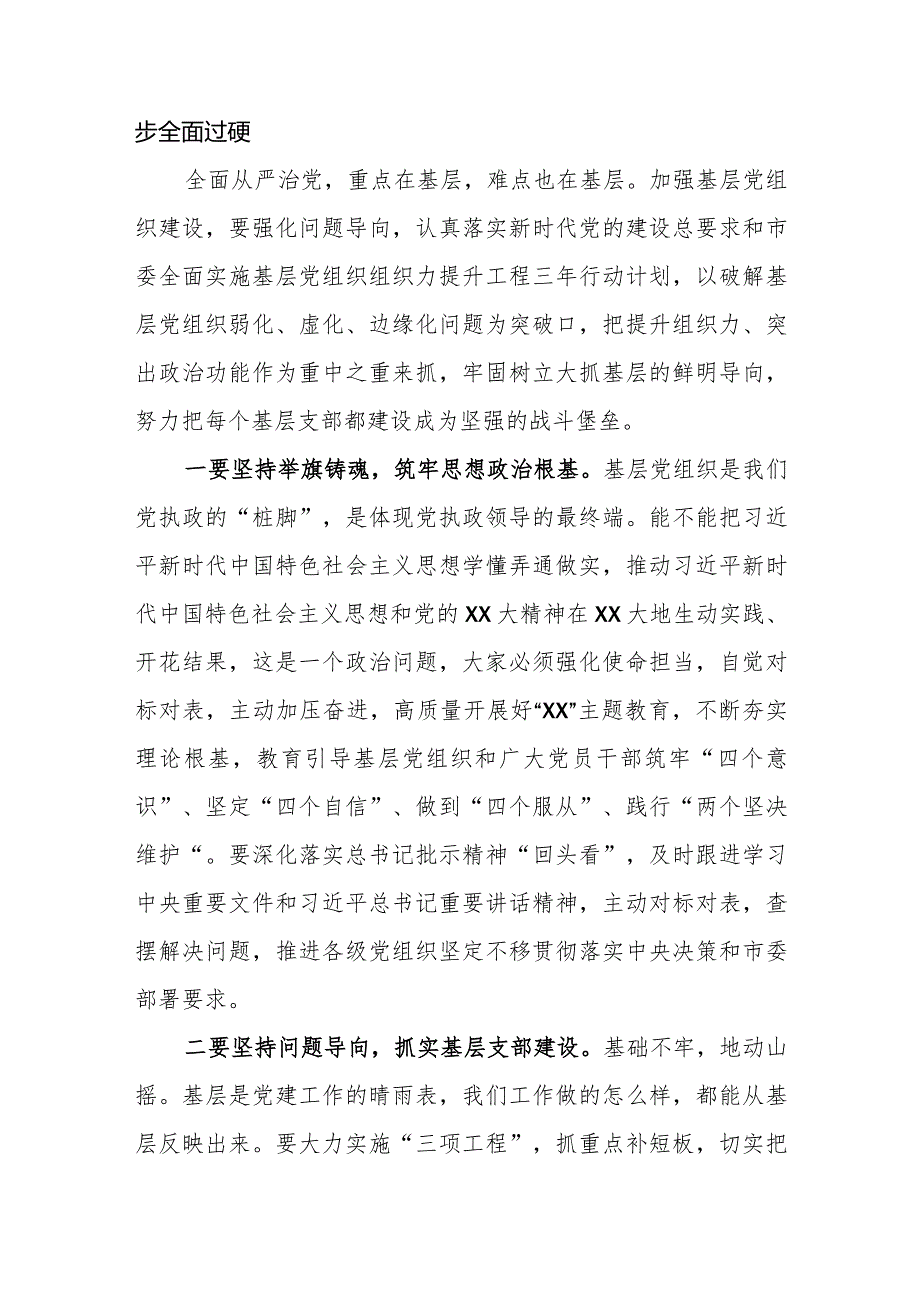 步全面过硬
全面从严治党，重点在基层，难点也在基层。加强基层党组
织建设，要强化问题导向，认真落实新时代党的建设总要求和市
委全面实施基层党组织组织力提升工程三年行动计划，以破解基
层党组织弱化、虚化、边缘化问题为突破口，把提升组织力、突
出政治功能作为重中之重来抓，牢固树立大抓基层的鲜明导向，
努力把每个基层支部都建设成为坚强的战斗堡垒。
一要坚持举旗铸魂，筑牢思想政治根基。基层党组织是我们
党执政的“桩脚”，是体现党执政领导的最终端。能不能把习近
平新时代中国特色社会主义思想学懂弄通做实，推动习近平新时
代中国特色社会主义思想和党的XX大精神在XX大地生动实践、
开花结果，这是一个政治问题，大家必须强化使命担当，自觉对
标对表，主动加压奋进，高质量开展好“XX”主题教育，不断夯实
理论根基，教育引导基层党组织和广大党员干部筑牢“四个意
识”、坚定“四个自信”、做到“四个服从”、践行“两个坚决
维护“。要深化落实总书记批示精神“回头看”，及时跟进学习
中央重要文件和习近平总书记重要讲话精神，主动对标对表，查
摆解决问题，推进各级党组织坚定不移贯彻落实中央决策和市委
部署要求。
二要坚持问题导向，抓实基层支部建设。基础不牢，地动山
摇。基层是党建工作的晴雨表，我们工作做的怎么样，都能从基
层反映出来。要大力实施“三项工程”，抓重点补短板，切实把